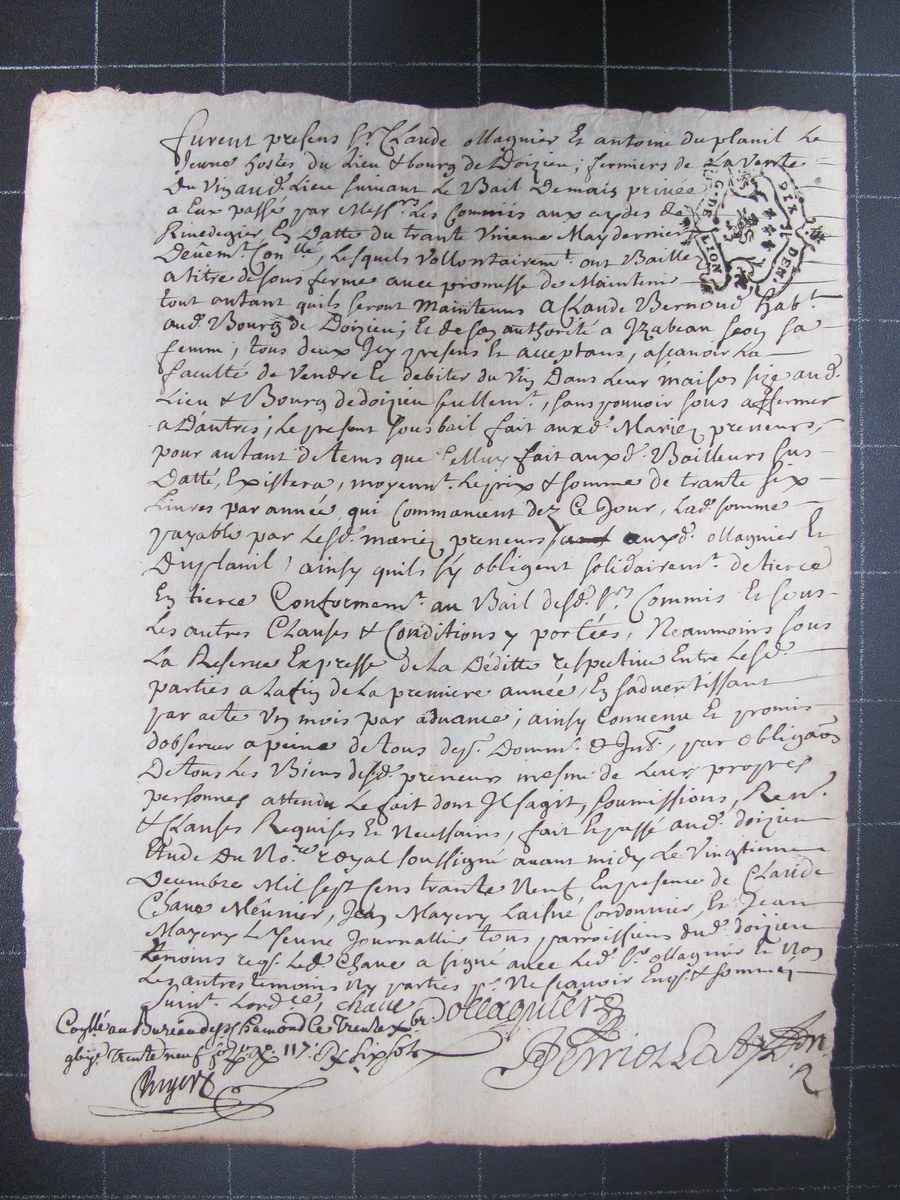 furent presens Sr. Claude ollagnier Et antoine du planil Le
Jeune hostes du Lieu & bourg de Doizieu; fermiers de La Vente
Du Vin aud. Lieu suivant Le Bail Demain privée
a Eux passé par Messrs. Les Commis aux aydes de
En Datte du trante Unieme May dernier
Deüemt. Conllé, Lesquels Vollontairemt. ont Baillé
a titre de sous ferme avec promesse de Maintenir
tout autant quils seront Maintenus a Claude Bernoud habt.
aud. Bourg de Doizieu; Et de son authorité a Izabeau sa
femme; tous deux Icy presens Et acceptans, ascavoir La
faculté de Vendre Et debiter du Vin Dans Leur maison size aud.
Lieu & Bourg de doizieu seullemt., sans pouvoir sous affermer
a Dautres; Le present sousbail fait auxd. Mariez preneurs,
pour autant de tems que Celluy fait auxd. Bailleurs sus
Datté, Existera, moyennt. Le prix & somme de trante six
Livres par année, qui Commancent dez Ce Jour, Lad. somme
payable par Lesd. mariez preneurs auxd. ollagnier Et
Duplanil, ainsy quils sy obligent solidairemt. de tierce
En tierce Conformemt. au Bail desd. Srs. Commis Et sous
Les autres Clauses & Conditions y portées, Neaumoins sous
La Reserve Expresse de La Déditte respective Entre Lesd.
parties a La fin de La premiere année, En sadvertissant
par acte Un mois par advance; ainsy Convenu Et promis
dobserver a peine de tous desp. Domm. & Int., par obligaon
De tous Les Biens desd. preneurs mesme de Leurs propres
personnes attendu Le fait dont Il sagit, soumissions, Ren.
& Clauses Requises Et Necessaires, fait Et passé aud. doizieu
Etude du Nore. royal soussigné avant midy Le Vingtieme
Decembre Mil sept sens trante Neuf En presence de Claude
Chave Meunier, Jean Mayery Laisné Cordonnier, Et Jean
Mayery Le Jeune Journallier tous parroissiens dud. doizieu
temoins reqs. Led. Chave a signé avec Led. Sr. ollagnier Et Non
Les autres temoins Ny parties pr. Ne scavoir Enqs. & sommez
suivt. Lordce. chave Dollagnier
Conllé au Bureau de St. Chamond Le Trente Xbre
gbij. Trente neuf fo. 117. Rx six sols